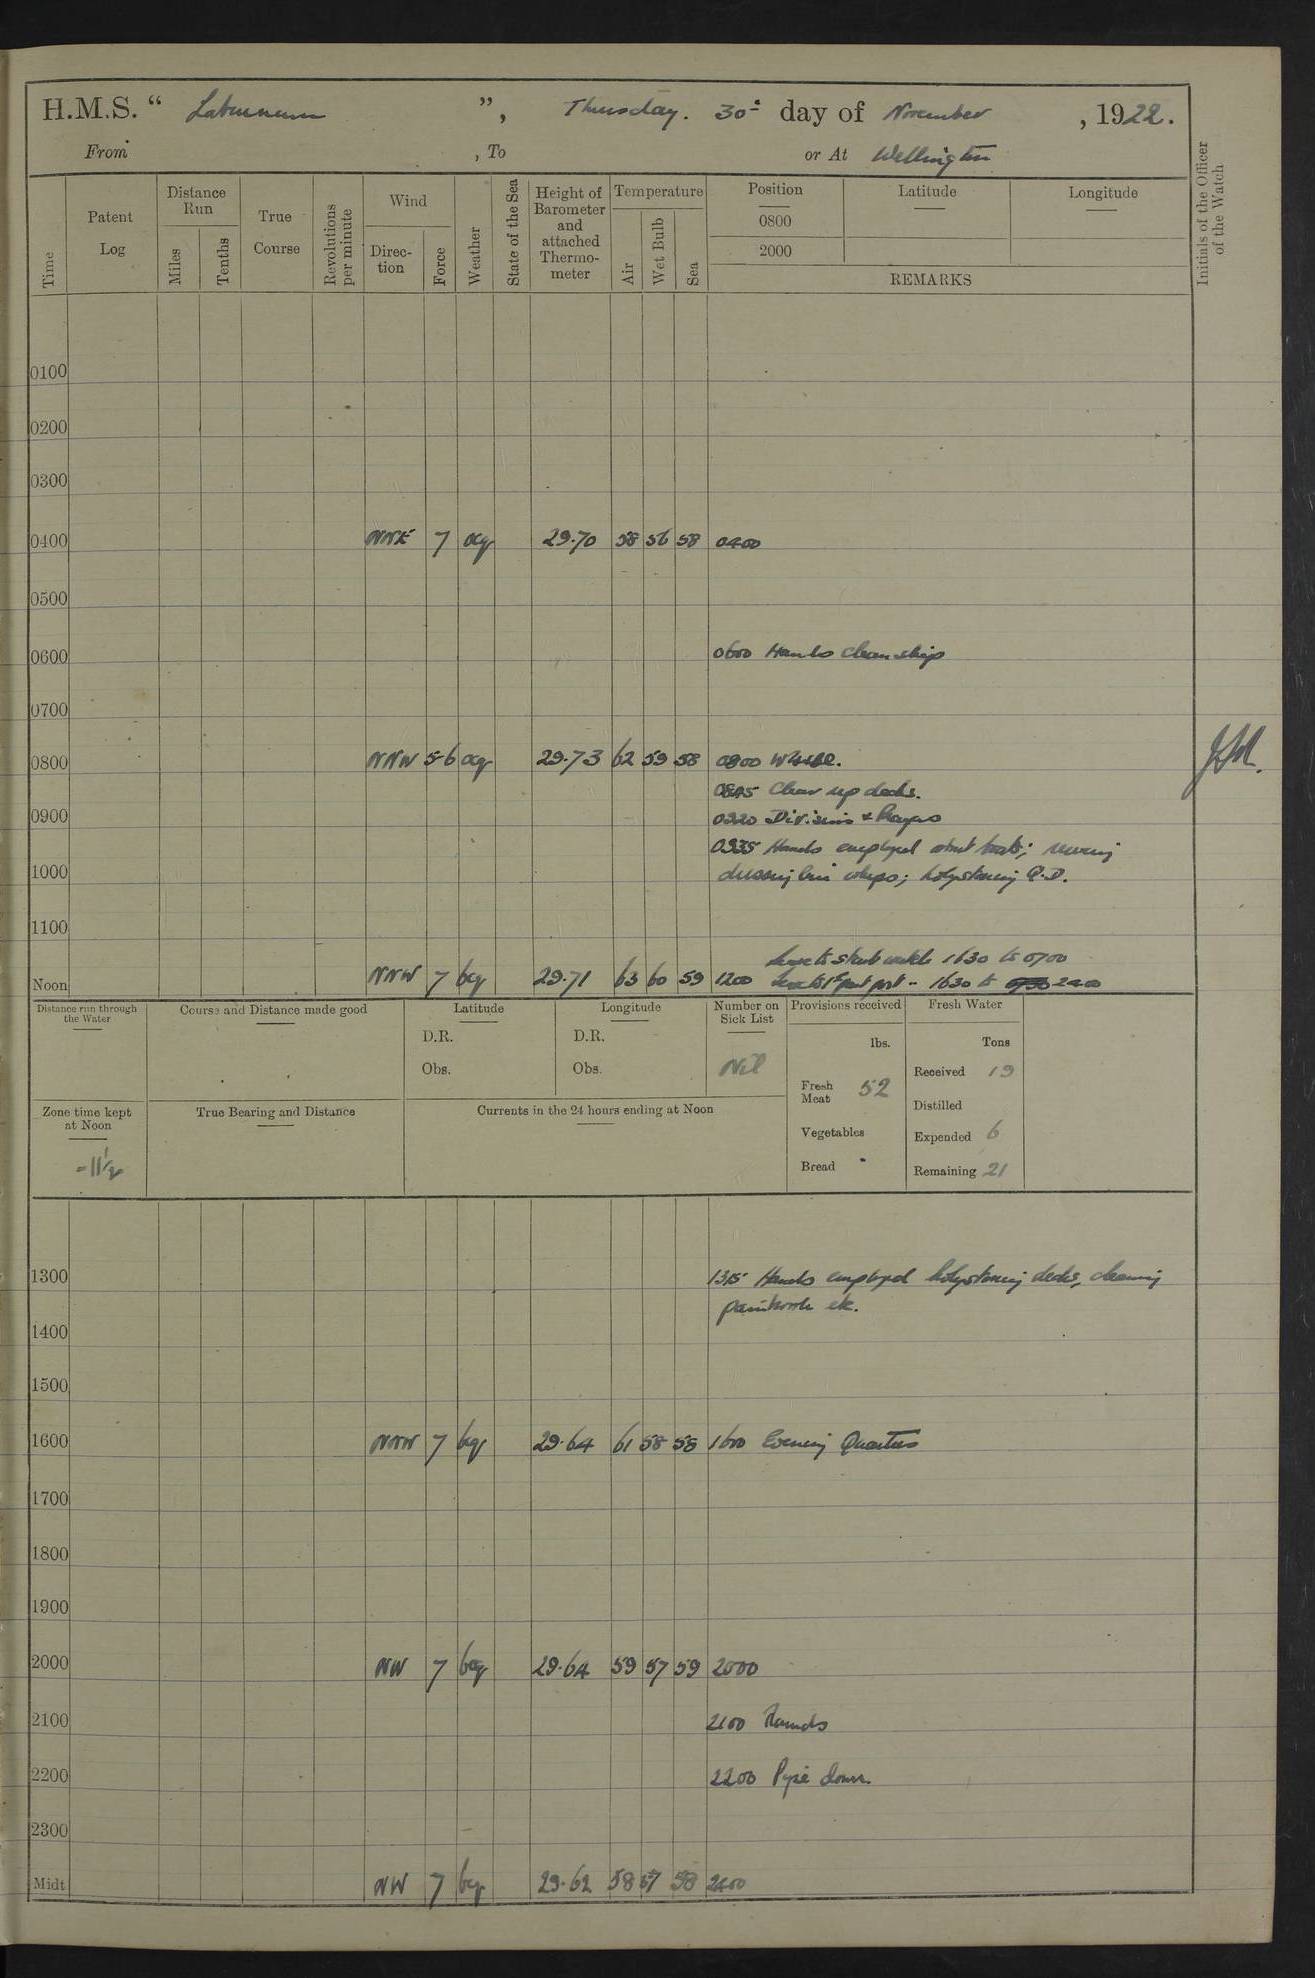 H.M.S. “ Laburnum ”, Thursday. 30th day of November, 1922.
From , To or At Wellington
Time
Patent Log
Distance Run
Miles
Tenths
True Course
Revolutions per minute
Wind
Direction
Force
Weather
State of the Sea
Height of Barometer and attached Thermometer
Temperature
Air
Wet Bulb
Sea
Position Latitude Longitude
0800
2000
REMARKS
Initials of the Officer of the Watch
0100
0200
0300
0400 NNE 7 ocq 29.70 58 56 58 0400
0500
0600 0600 Hands clean ship
0700
0800 NNW 5-6 ocq 29.73 62 59 58 0800
0845 Clear up decks.
0900 0920 Divisions & Prayers
0935 Hands employed about boats; reeving
1000 dressing line whips; holystoning Q.D.
1100
Leave to starb watch 1630 to 0700
Noon NNW 7 bcq 29.71 63 60 59 1200 Leave to 1st part port - 1630 to 2400
Distance run through the Water
Course and Distance made good
Latitude
D.R.
Obs.
Longitude
D.R.
Obs.
Number on Sick List
Nil
Provisions received
lbs.
Fresh Meat 52
Vegetables
Bread
Fresh Water
Tons
Received 19
Distilled
Expended 6
Remaining 21
Zone time kept at Noon
-11½
True Bearing and Distance
Currents in the 24 hours ending at Noon
1300 1315 Hands employed holystoning decks, cleaning
paintwork etc.
1400
1500
1600 NNW 7 bcq 29.64 61 58 58 1600 Evening Quarters
1700
1800
1900
2000 NW 7 bcq 29.64 59 57 59 2000
2100 2100 Rounds
2200 2200 Pipe down.
2300
Midt NW 7 bcq 29.62 58 57 58 2400